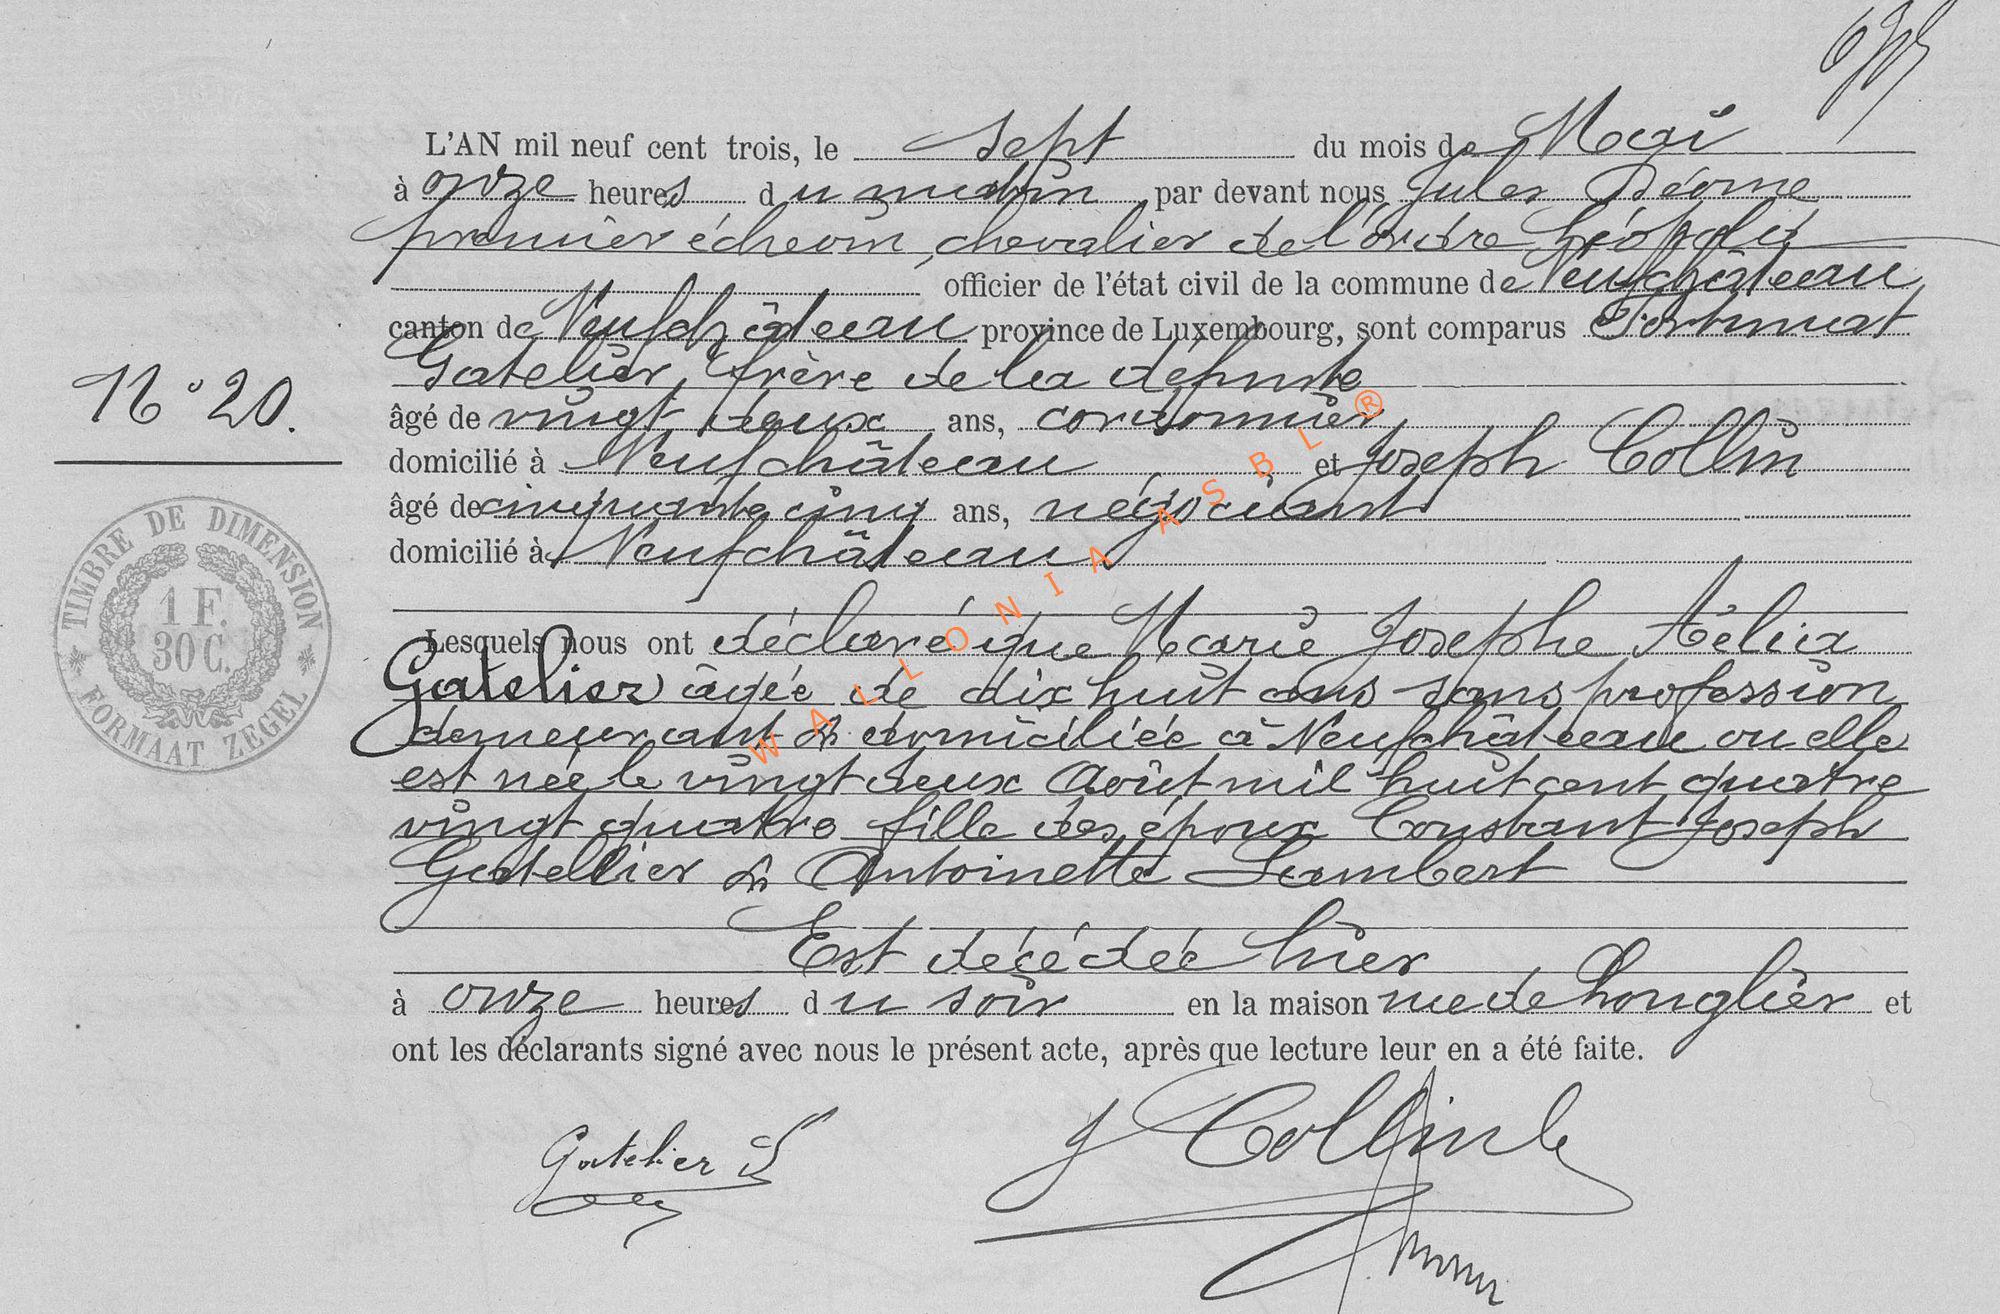 L'AN mil neuf cent trois, le sept du mois de Mai
à onze heures du matin par devant nous Jules
premier échevin, chevalier de l'ordre Léopold
officier de l'état civil de la commune de Neufchâteau
canton de Neufchâteau province de Luxembourg, sont comparus Fortunat
Gatelier, frère de la défunte
âgé de vingt deux ans, cordonnier
domicilié à Neufchâteau et Joseph Collin
N° 20.
âgé de cinquante cinq ans, négociant
domicilié à Neufchâteau
Lesquels nous ont déclaré que Marie Josephe Aélia
Gatelier âgée de dix huit ans sans profession
demeurant & domiciliée à Neufchâteau ou elle
est née le vingt deux Août mil huit cent quatre
vingt quatre fille des époux Constant Joseph
Gatellier & Antoinette Lambert
Est décédée hier
à onze heures du soir en la maison rue de Longlier et
ont les déclarants signé avec nous le présent acte, après que lecture leur en a été faite.
Gatelier
J Collin
TIMBRE DE DIMENSION
1 F.
30 C.
FORMAAT ZEGEL
WALLONIA ASBL ®